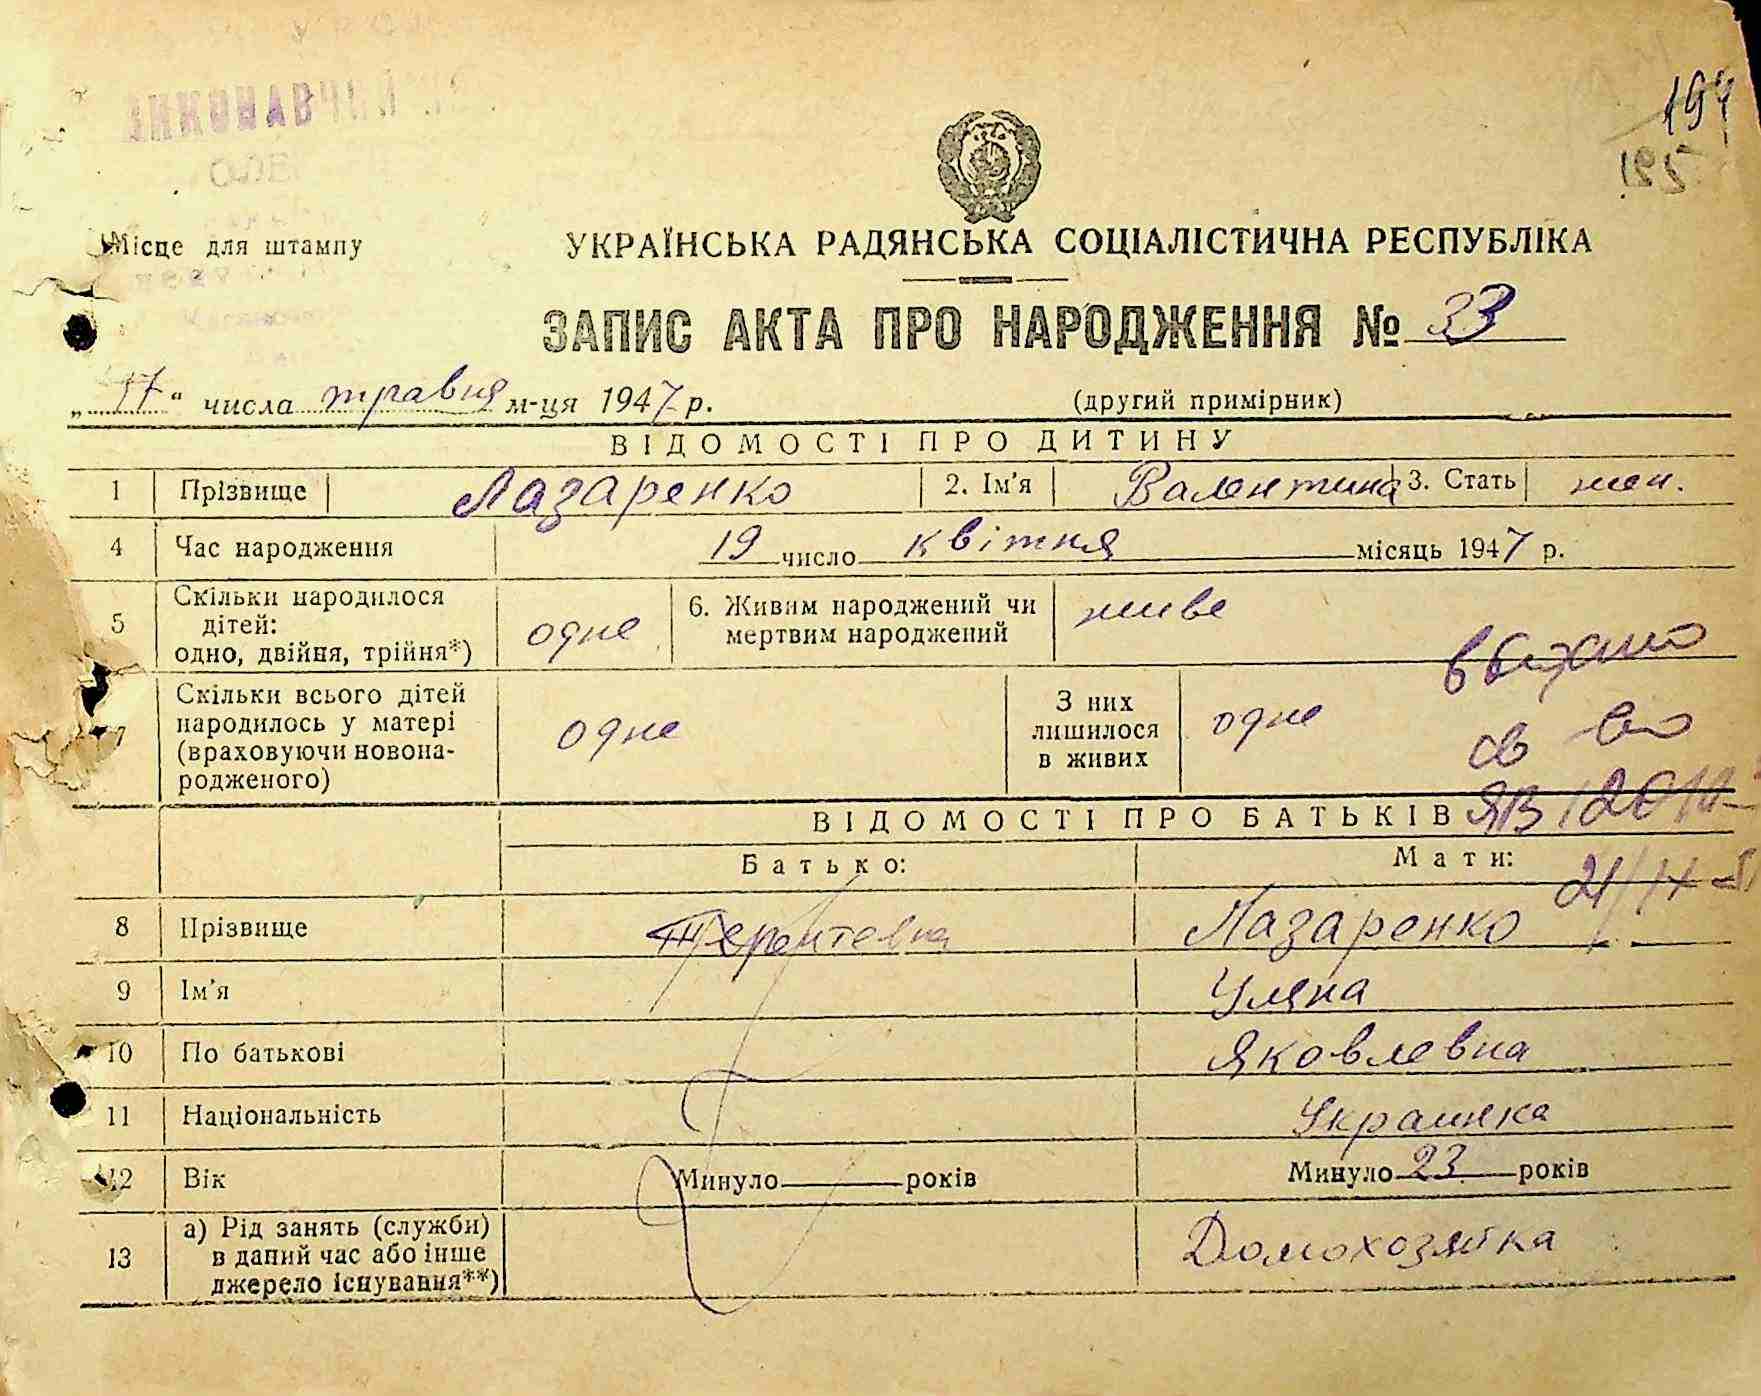 ВИКОНАВЧИЙ
194
195
Місце для штампу
УКРАЇНСЬКА РАДЯНСЬКА СОЦІАЛІСТИЧНА РЕСПУБЛІКА
ЗАПИС АКТА ПРО НАРОДЖЕННЯ № 33
„17“ числа травня м-ця 1947 р. (другий примірник)
ВІДОМОСТІ ПРО ДИТИНУ
1 Прізвище Лазаренко 2. Ім'я Валентина 3. Стать жен.
4 Час народження 19 число квітня місяць 1947 р.
5 Скільки народилося дітей: одно, двійня, трійня*) одне 6. Живим народжений чи мертвим народжений живе
7 Скільки всього дітей народилось у матері (враховуючи новонародженого) одне З них лишилося в живих одне
св во
ЯВ
ВІДОМОСТІ ПРО БАТЬКІВ
Батько: Мати:
8 Прізвище Лазаренко
9 Ім'я Уляна
10 По батькові Яковлевна
11 Національність Украинка
12 Вік Минуло років Минуло 23 років
13 а) Рід занять (служби) в даний час або інше джерело існування**) Домохозяйка